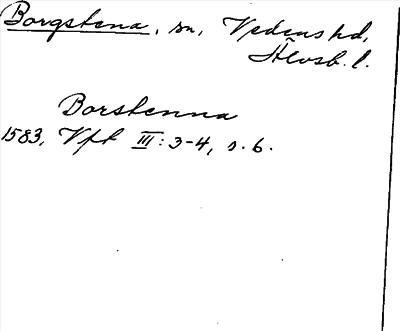 Borgstena, sn, Vedens hd,
Älvsb. l.
Borstenna
1583, Vft III: 3-4, s. 6.